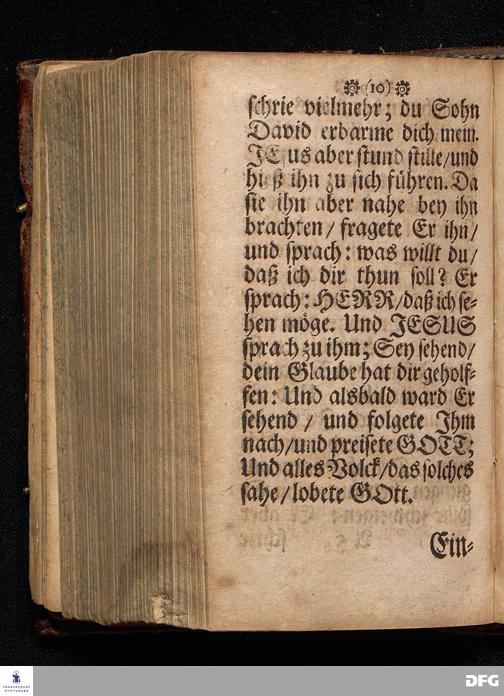 (10)
schrie vielmehr; du Sohn
David erbarme dich mein.
JEsus aber stund stille/und
hieß ihn zu sich führen. Da
sie ihn aber nahe bey ihn
brachten/ fragete Er ihn/
und sprach: was willt du/
daß ich dir thun soll? Er
sprach: HERR/daß ich se-
hen möge. Und JESUS
sprach zu ihm; Sey sehend/
dein Glaube hat dir geholf-
fen: Und alsbald ward Er
sehend/ und folgete Ihm
nach/und preisete GOTT;
Und alles Volck/das solches
sahe/lobete GOtt.
Ein-
FRANCKESCHE
STIFTUNGEN
DFG